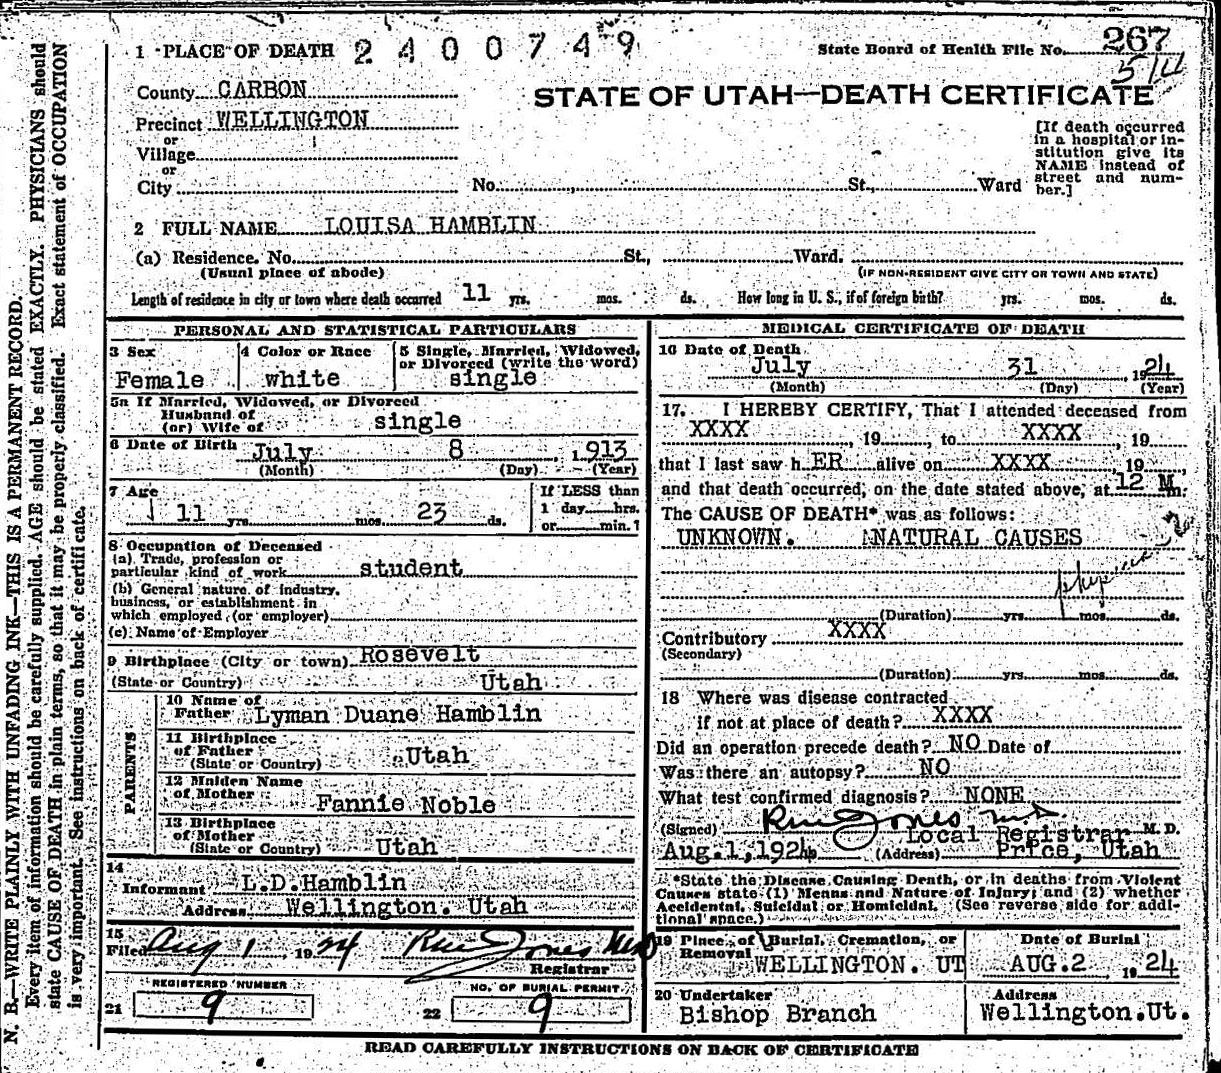 1 PLACE OF DEATH 2400749
State Board of Health File No. 267
County CARBON
STATE OF UTAH—DEATH CERTIFICATE
Precinct WELLINGTON
or
Village
or
City No. St., Ward
[If death occurred
in a hospital or in-
stitution give its
NAME instead of
street and num-
ber.]
2 FULL NAME LOUISA HAMBLIN
(a) Residence. No. St., Ward.
(Usual place of abode) (IF NON-RESIDENT GIVE CITY OR TOWN AND STATE)
Length of residence in city or town where death occurred 11 yrs. mos. ds. How long in U. S., if of foreign birth? yrs. mos. ds.
PERSONAL AND STATISTICAL PARTICULARS
3 Sex
Female
4 Color or Race
white
5 Single, Married, Widowed,
or Divorced (write the word)
single
5a If Married, Widowed, or Divorced
Husband of
(or) Wife of single
6 Date of Birth July 8, 1913
(Month) (Day) (Year)
7 Age
11 yrs. mos. 23 ds.
If LESS than
1 day hrs.
or min.?
8 Occupation of Deceased
(a) Trade, profession or
particular kind of work student
(b) General nature of industry,
business, or establishment in
which employed (or employer)
(c) Name of Employer
9 Birthplace (City or town) Rosevelt
(State or Country) Utah
PARENTS
10 Name of
Father Lyman Duane Hamblin
11 Birthplace
of Father
(State or Country) Utah
12 Maiden Name
of Mother Fannie Noble
13 Birthplace
of Mother
(State or Country) Utah
14
Informant L.D.Hamblin
Address Wellington. Utah
15
Filed Aug 1, 1924 Registrar
REGISTERED NUMBER
21 9
NO. OF BURIAL PERMIT.
22 9
MEDICAL CERTIFICATE OF DEATH
16 Date of Death
July 31, 1924
(Month) (Day) (Year)
17. I HEREBY CERTIFY, That I attended deceased from
XXXX, 19, to XXXX, 19
that I last saw h ER alive on XXXX, 19,
and that death occurred, on the date stated above, at 12 M m.
The CAUSE OF DEATH* was as follows:
UNKNOWN. NATURAL CAUSES
(Duration) yrs. mos. ds.
Contributory XXXX
(Secondary)
(Duration) yrs. mos. ds.
18 Where was disease contracted
if not at place of death? XXXX
Did an operation precede death? NO Date of
Was there an autopsy? NO
What test confirmed diagnosis? NONE
(Signed) Jones M.D. Local Registrar M. D.
Aug.1,1924 (Address) Price, Utah
*State the Disease Causing Death, or in deaths from Violent
Causes state (1) Means and Nature of Injury; and (2) whether
Accidental, Suicidal or Homicidal. (See reverse side for addi-
tional space.)
19 Place of Burial, Cremation, or
Removal WELLINGTON. UT
Date of Burial
AUG.2, 1924
20 Undertaker
Bishop Branch
Address
Wellington.Ut.
READ CAREFULLY INSTRUCTIONS ON BACK OF CERTIFICATE
N. B.—WRITE PLAINLY WITH UNFADING INK—THIS IS A PERMANENT RECORD.
Every item of information should be carefully supplied. AGE should be stated EXACTLY. PHYSICIANS should
state CAUSE OF DEATH in plain terms, so that it may be properly classified. Exact statement of OCCUPATION
is very important. See instructions on back of certificate.